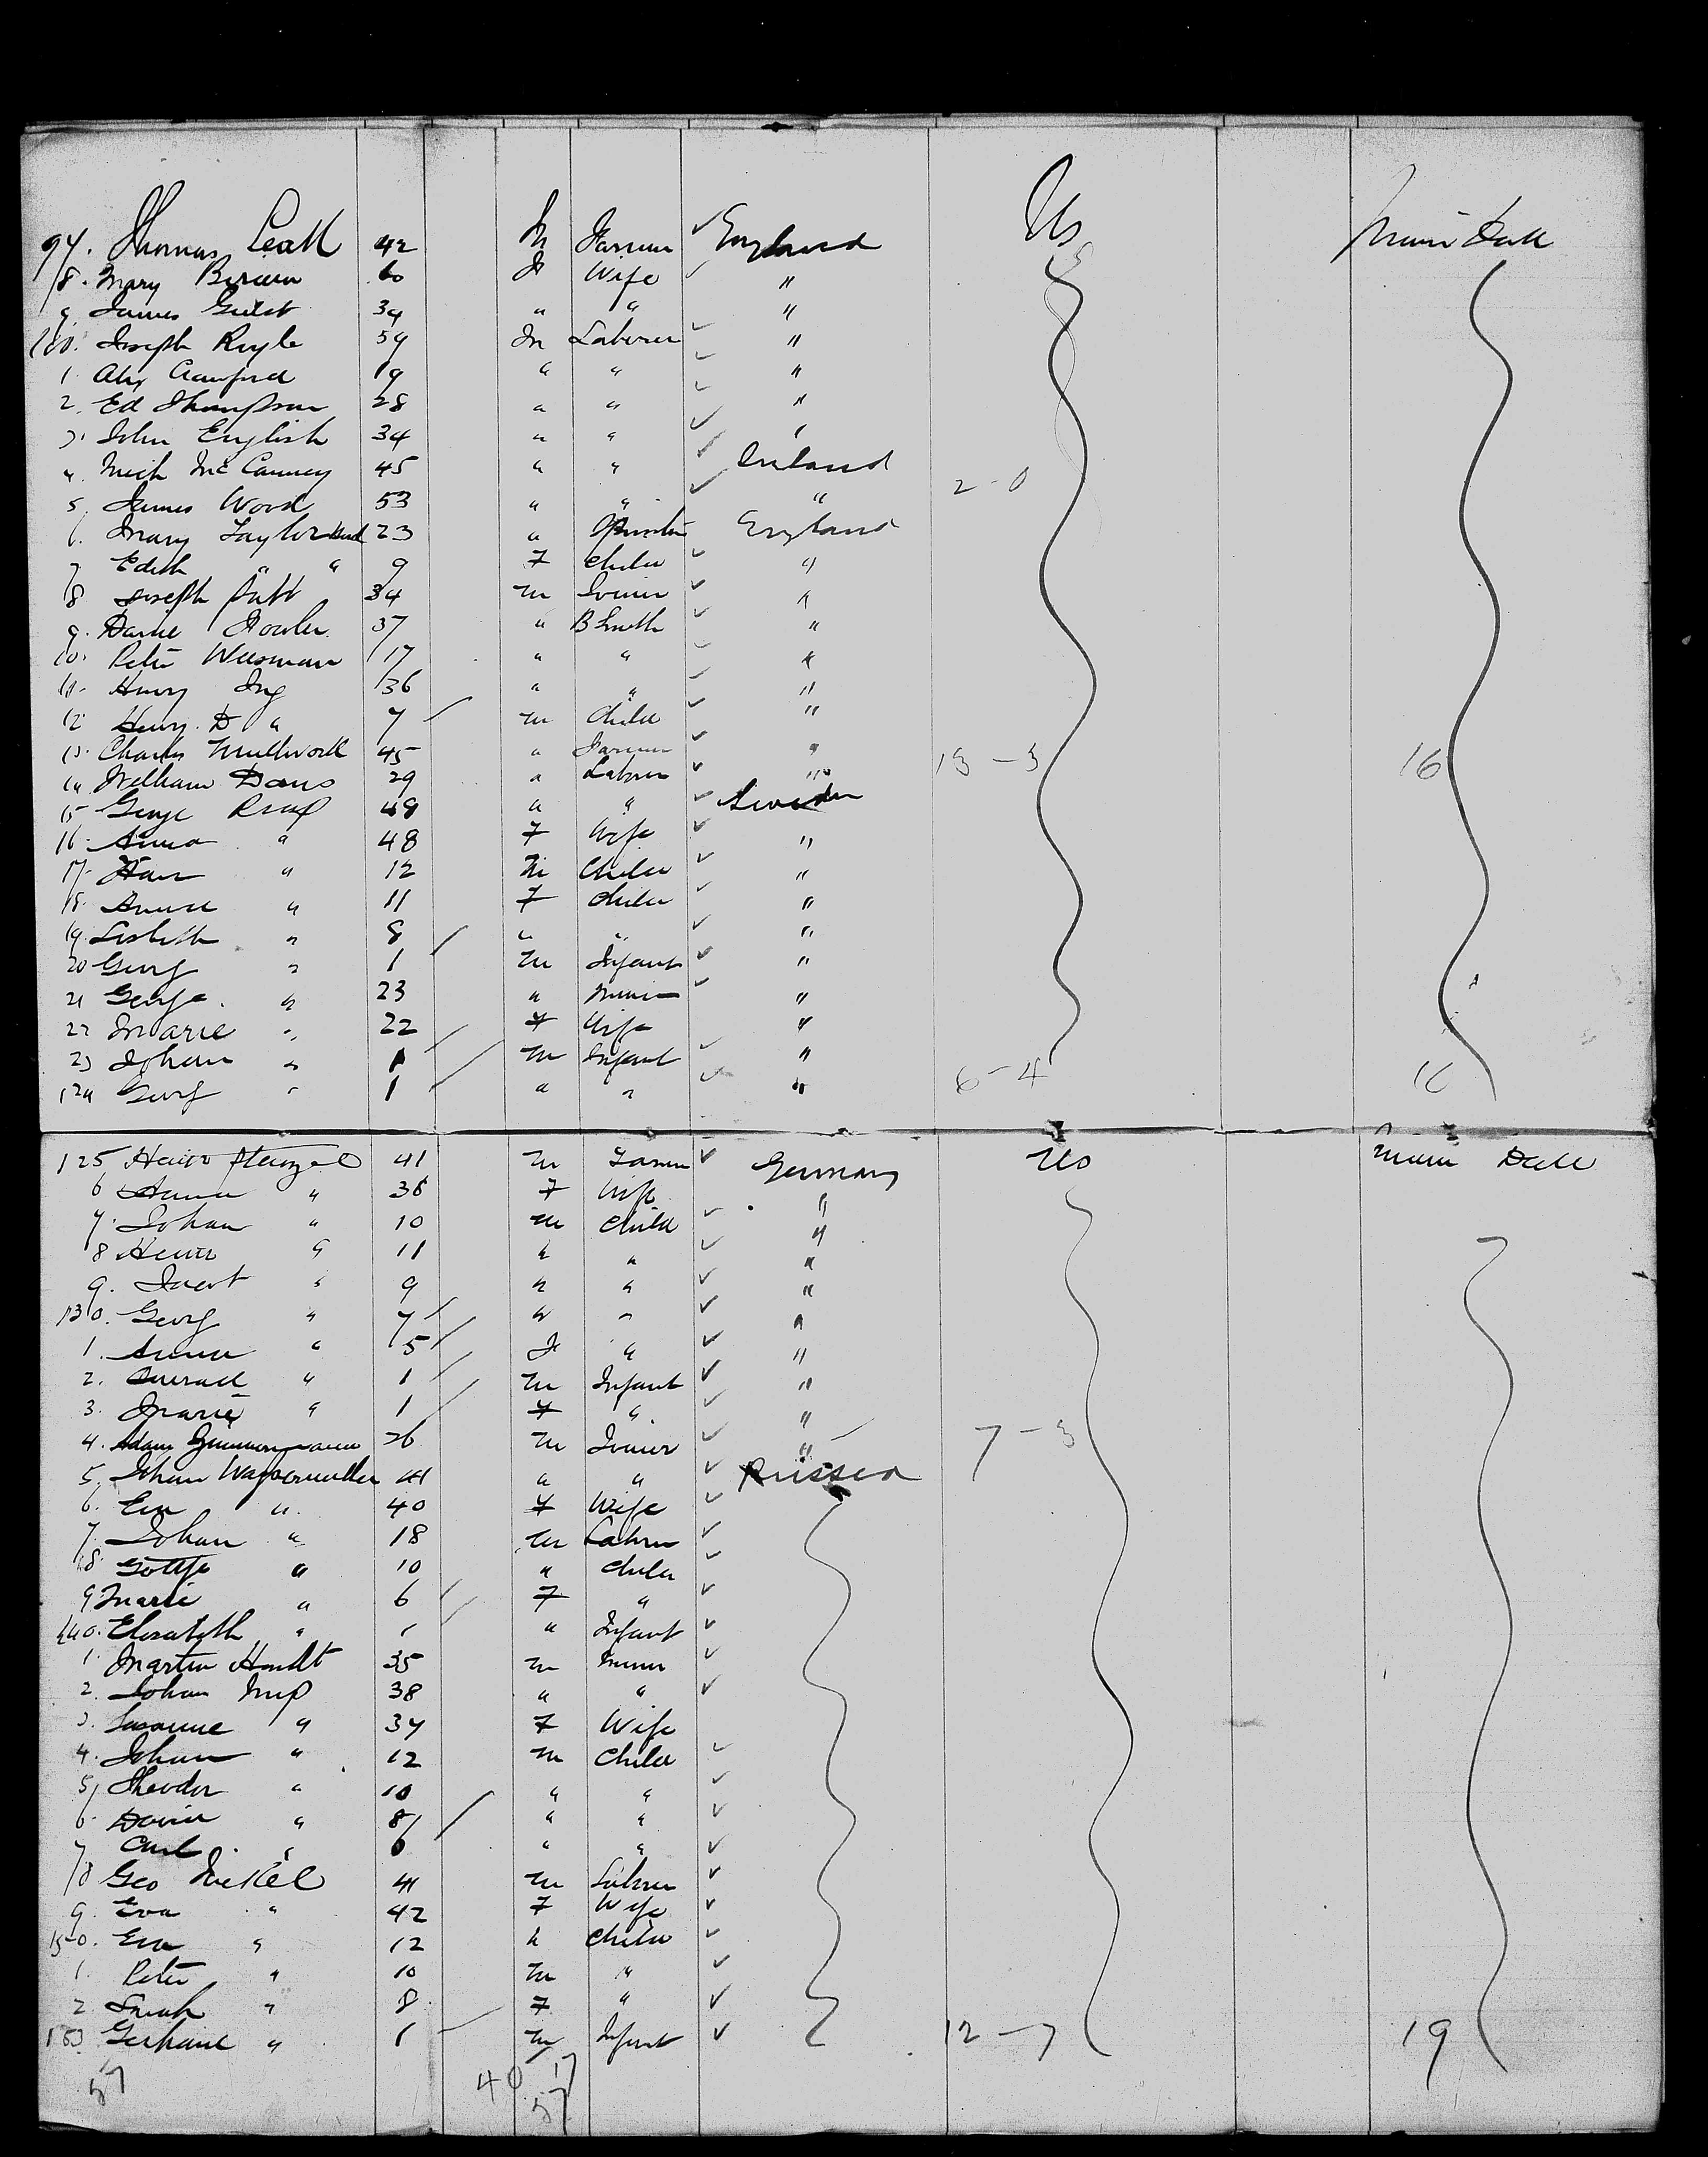 Us
97. Thomas Leatt 42 M Farmer England Main Deck
8. Mary Brown 60 F Wife "
9. James 34 " " "
100. Joseph Ryle 59 M Laborer "
1. Alex Crawford 19 " " "
2. Ed Thompson 28 " " "
3. John English 34 " " "
4. Mich McCanney 45 " " Ireland
5. James Wood 53 " " " 2-0
6. Mary Taylor 23 " England
7. Edith " " 9 F Child "
8 Joseph 34 M Joiner "
9. Fowler 37 " B Smith "
10. Peter Weesman 17 " " "
11. Henry Ing 36 " " "
12 Henry D " 7 M Child "
13. Charles 45 " Farmer " 13-3 16
14 William Davis 29 " Laborer "
15 George 48 " " Sweden
16. Anna " 48 F Wife "
17. Hans " 12 M Child "
18. " 11 F Child "
19. Lisbeth " 8 " " "
20 Georg " 1 M Infant "
21 George " 23 " Miner "
22 Marie " 22 F Wife "
23 Johan " 1 M Infant "
124 Georg " 1 " " " 6-4 16
125 41 M Farmer Germany Us Main Deck
6 Anna " 36 F Wife "
7. Johan " 10 M Child "
8 " 11 " " "
9. " 9 " " "
130. Georg " 7 " " "
1. Anna " 5 F " "
2. " 1 M Infant "
3. Marie " 1 F " "
4. Adam Zimmermann 26 M Joiner " 7-3
5. Johan Wassermuller 41 " " Russia
6. Eva " 40 F Wife
7. Johan " 18 M Labrer
8 " 10 " Child
9 Marie " 6 F "
140. Elisabeth " 1 " Infant
1. Martin 35 M Miner
2. Johan 38 " "
3. Susanne " 37 F Wife
4. Johan " 12 M Child
5, Theodor " 10 " "
6. David " 8 " "
7 Carl " 6 " "
8 Geo 41 M Labrer
9. Eva " 42 F Wife
150. Eva " 12 " Child
1. Peter " 10 M "
2 Sarah " 8 F "
153 Gerhard " 1 M Infant 12-7 19
57 40 17
57